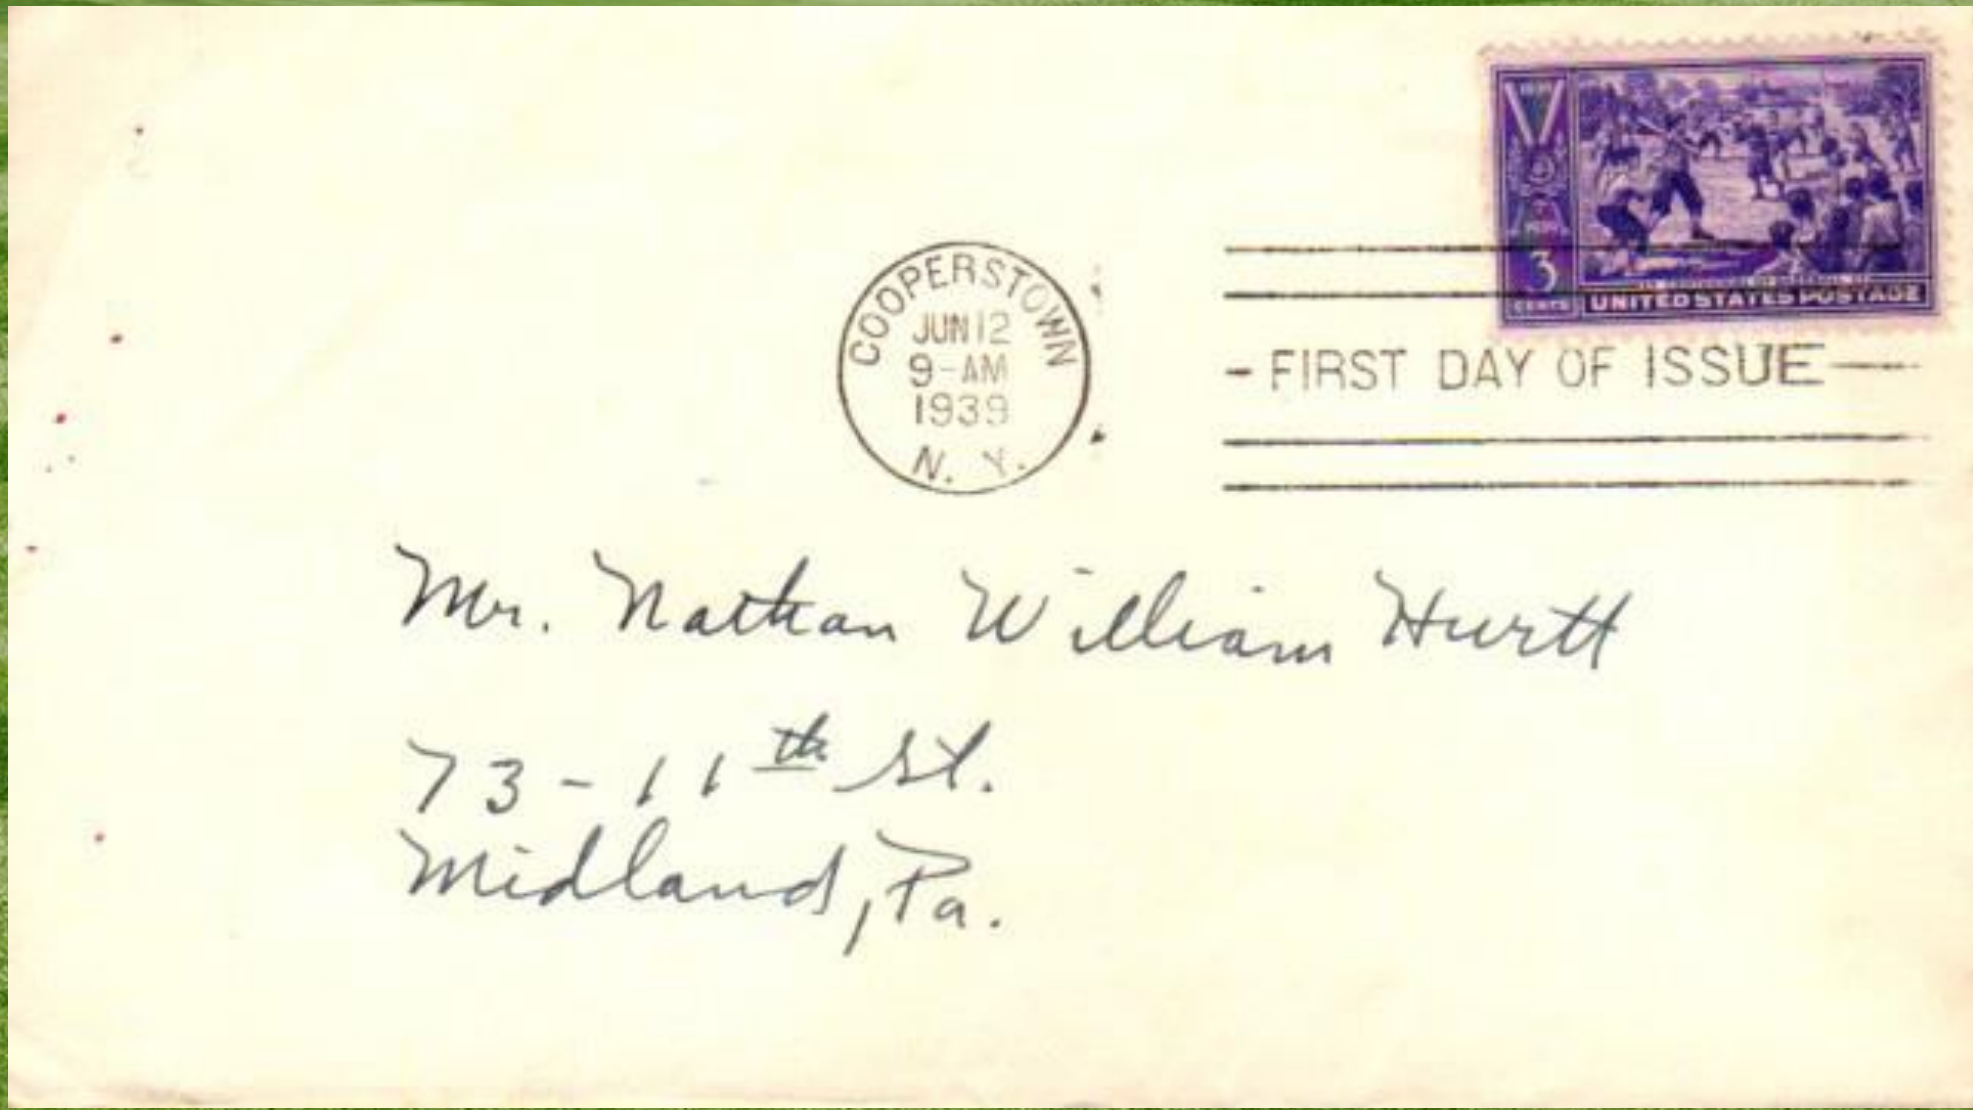 COOPERSTOWN
JUN 12
9-AM
1939
N. Y.
3
CENTS
UNITED STATES POSTAGE
- FIRST DAY OF ISSUE -
Mr. Nathan William Hurtt
73-11th St.
Midland, Pa.